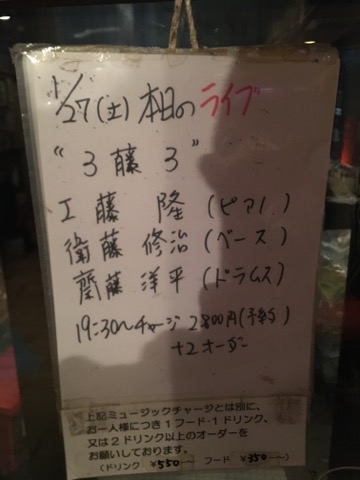 1/27(土)本日のライブ
"3藤3"
工藤 隆(ピアノ)
衛藤 修治(ベース)
齋藤 洋平(ドラムス)
19:30〜チャージ 2800円(予約)
+2オーダー
上記ミュージックチャージとは別に、
お一人様につき1フード・1ドリンク、
又は2ドリンク以上のオーダーを
お願いしております。
(ドリンク ¥550〜 フード ¥350〜)